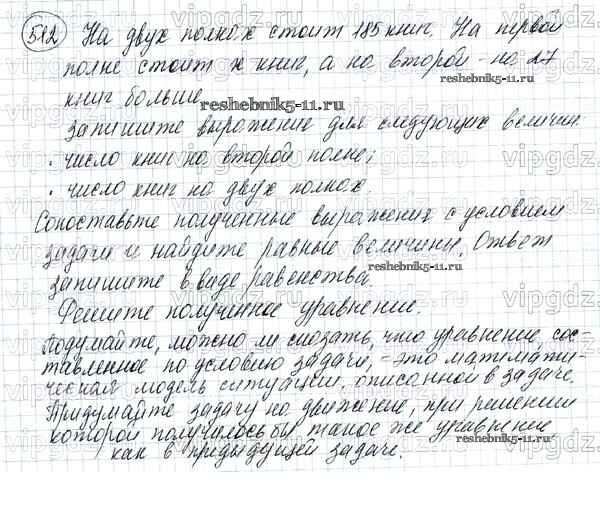 512 На двух полках стоит 185 книг. На первой
полке стоит х книг, а на второй - на 27
книг больше.
reshebnik5-11.ru
reshebnik5-11.ru
Запишите выражение для следующих величин
• число книг на второй полке;
• число книг на двух полках.
Сопоставьте полученные выражения с условием
задачи и найдите равные величины. Ответ
запишите в виде равенства.
reshebnik5-11.ru
Решите полученное уравнение.
Подумайте, можно ли сказать, что уравнение, сос-
тавленное по условию задачи, - это математи-
ческая модель ситуации, описанной в задаче.
Придумайте задачу на движение, при решении
которой получалось бы такое же уравнение
reshebnik5-11.ru
как в предыдущей задаче.